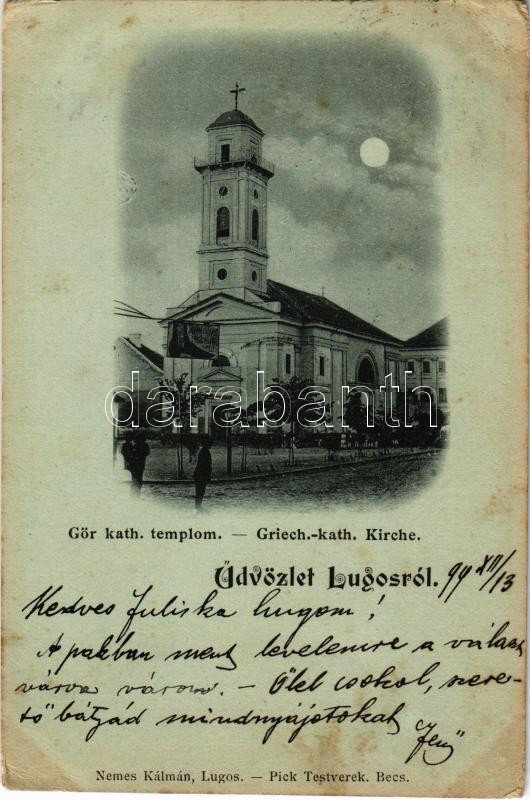 darabanth
Gör kath. templom. — Griech.-kath. Kirche.
Üdvözlet Lugosról. 99 XII/13
Kedves Juliska hugom!
A pakban ment levelemre a választ
várva várom. — Ölel csokol, szere-
tő bátyád mindnyájotokat
Jenő
Nemes Kálmán, Lugos. — Pick Testverek. Becs.